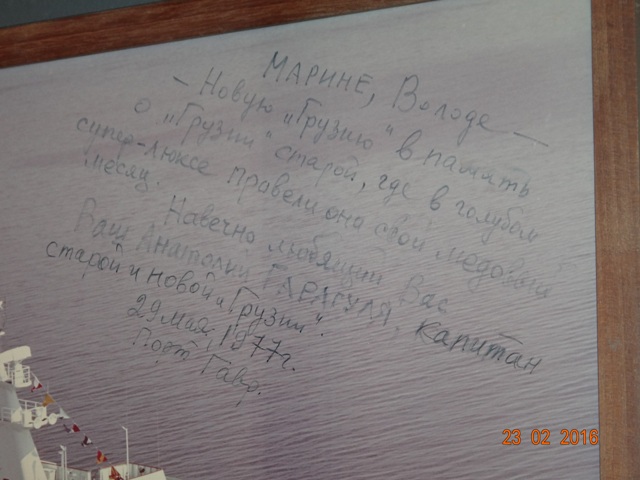 МАРИНЕ, Володе —
— Новую „Грузию" в память
о „Грузии" старой, где в голубом
супер-люксе провели она свой медовый
месяц.
Навечно любящий Вас
Ваш Анатолий ГАРАГУЛЯ, капитан
старой и новой „Грузии".
29 мая, 1977г.
Порт Гавр.
23 02 2016